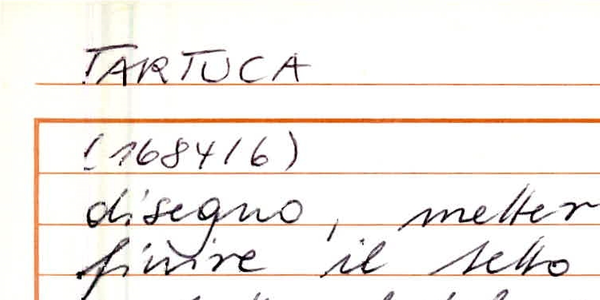 TARTUCA
(1684/6)
disegno, metter
finire il setto